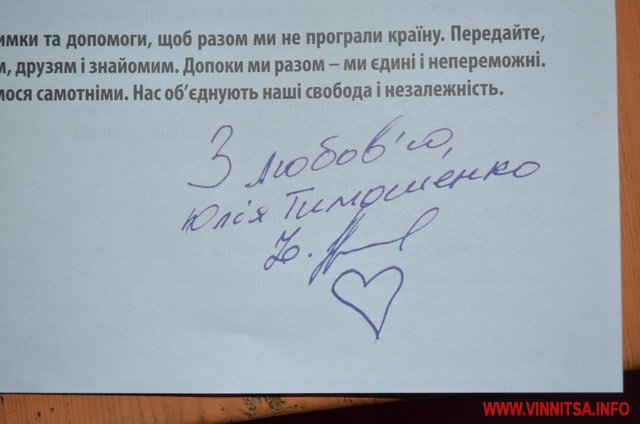 имки та допомоги, щоб разом ми не програли країну. Передайте,
м, друзям і знайомим. Допоки ми разом – ми єдині і непереможні.
мося самотніми. Нас об’єднують наші свобода і незалежність.
З любов'ю,
Юлія Тимошенко
WWW.VINNITSA.INFO